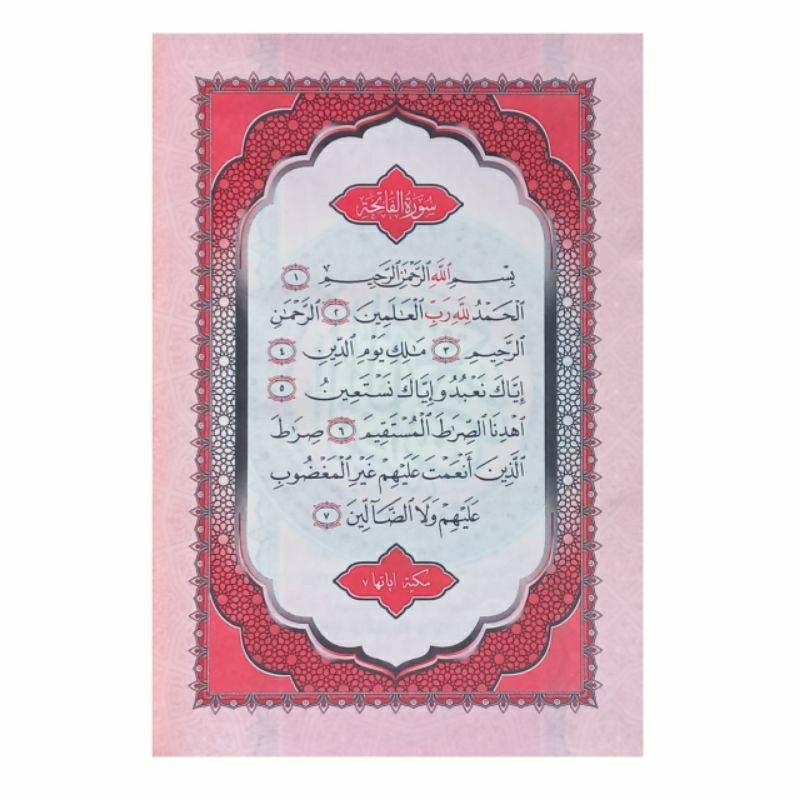 سُورَةُ الفَاتِحَةِ
بِسْمِ اللَّهِ الرَّحْمَٰنِ الرَّحِيمِ ١
الْحَمْدُ لِلَّهِ رَبِّ الْعَالَمِينَ ٢ الرَّحْمَٰنِ
الرَّحِيمِ ٣ مَالِكِ يَوْمِ الدِّينِ ٤
إِيَّاكَ نَعْبُدُ وَإِيَّاكَ نَسْتَعِينُ ٥
اهْدِنَا الصِّرَاطَ الْمُسْتَقِيمَ ٦ صِرَاطَ
الَّذِينَ أَنْعَمْتَ عَلَيْهِمْ غَيْرِ الْمَغْضُوبِ
عَلَيْهِمْ وَلَا الضَّآلِّينَ ٧
مكية اياتها ٧